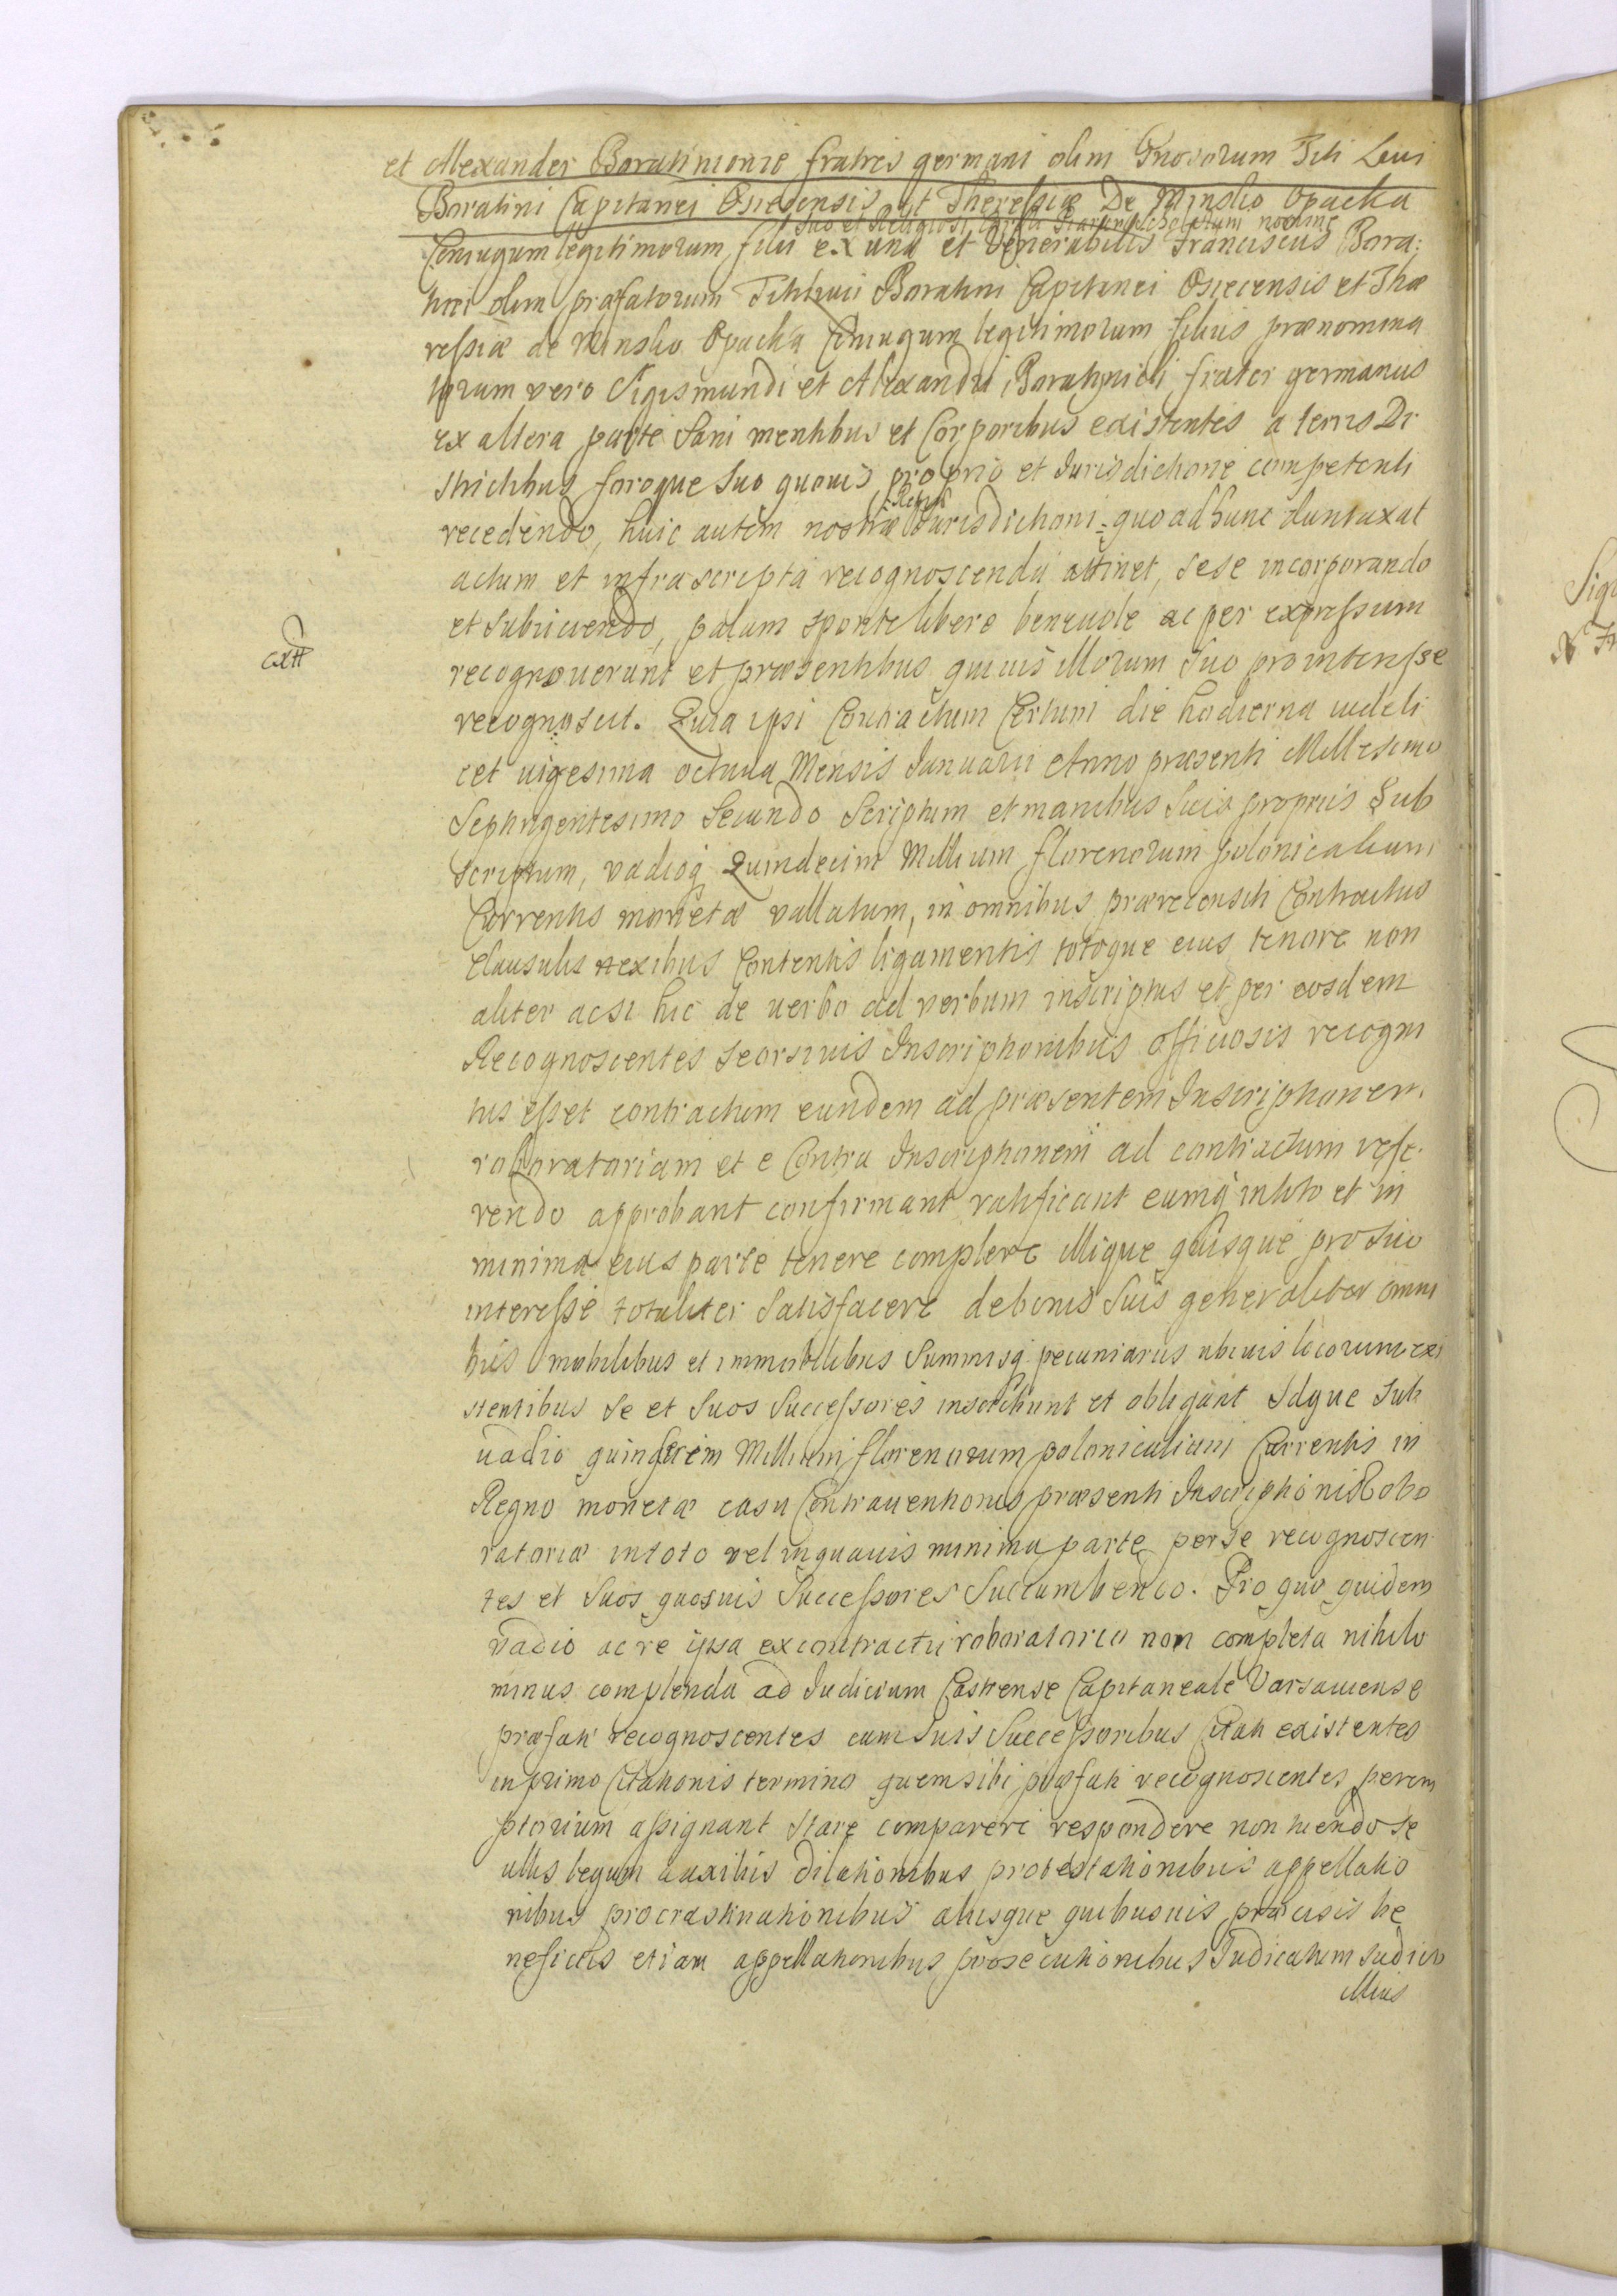 et Alexander Boratinionie fratres germani olim Gnosorum Titi Liui
Boratini Capitanei Osiecensis et Theressiæ De Minsko Opacka
suo et Religiosi Scholarum nomine
Coniugum legitimorum filii ex una et Venerabilis Franciscus Bora:
tini olim præfatorum Titi Liuii Boratini Capitanei Osiecensis et Thæ
ressiæ de Minsko Opacka Coniugum legitimorum filius prænomina
torum vero Sigismundi et Alexandri Boratynieli frater germanus
ex altera parte Sani mentibus et Corporibus existentes a terris Di
strictibus foroque Suo quouis proprio et Iurisdictione competenti
recedendo, huic autem nostræ Jurisdictioni quo ad hunc duntaxat
actum et infrascripta recognoscenda attinet, sese incorporando
et subiiciendo, palam sponte libere beneuole ac per expressum
recognouerunt et præsentibus quiuis illorum Suo pro interesse
recognoscit. Quia ipsi Contractum Certum die hodierna videli
cet uigesima octaua Mensis Januarii Anno præsenti Millesimo
Septingentesimo Secundo Scriptum et manibus Suis propriis Sub
scriptum, vadioq Quindecim Millium florenorum polonicalium
Currentis monetæ vallatum, in omnibus prærecensiti Contractus
Clausulis nexibus Contentis ligamentis totoque eius tenore non
aliter acsi hic de uerbo ad verbum inscriptus et per eosdem
Recognoscentes seorsiuis Inscriptionibus officiosis recogni
tus esset contractum eundem ad præsentem Inscriptionem
roboratoriam et e Contra Inscriptionem ad contractum refe.
rendo approbant confirmant ratificant eumq in toto et in
minima eius parte tenere complere illique quisque pro suo
interesse totaliter Satisfacere de bonis Suis generaliter omni
bus mobilibus et immobilibus Summisq pecuniariis ubiuis locorum exi
stentibus Se et Suos Successores inscribunt et obligant Idque Sub
uadio quindecim Millium florenorum polonicalium Currentis in
Regno monetæ casu Contrauentionis præsenti Inscriptioni Robo
ratoriæ in toto vel in quauis minima parte per Se recognoscen
tes et Suos quosuis Successores Succumbendo. Pro quo quidem
vadio ac re ipsa ex contractu roboratorio non completa nihilo
minus complenda ad Iudicium Castrense Capitaneale Varsauiense
præfati recognoscentes cum Suis Successoribus Citati existentes
in primo Citationis termino quem sibi præfati recognoscentes perem
ptorium assignant Stare comparere respondere non tuendo se
ullis legum auxiliis dilationibus protestationibus appellatio
nibus procrastinationibus aliisque quibusuis præcisis be
neficiis etiam appellationibus prosecutionibus Iudicatum Iudicio
illius